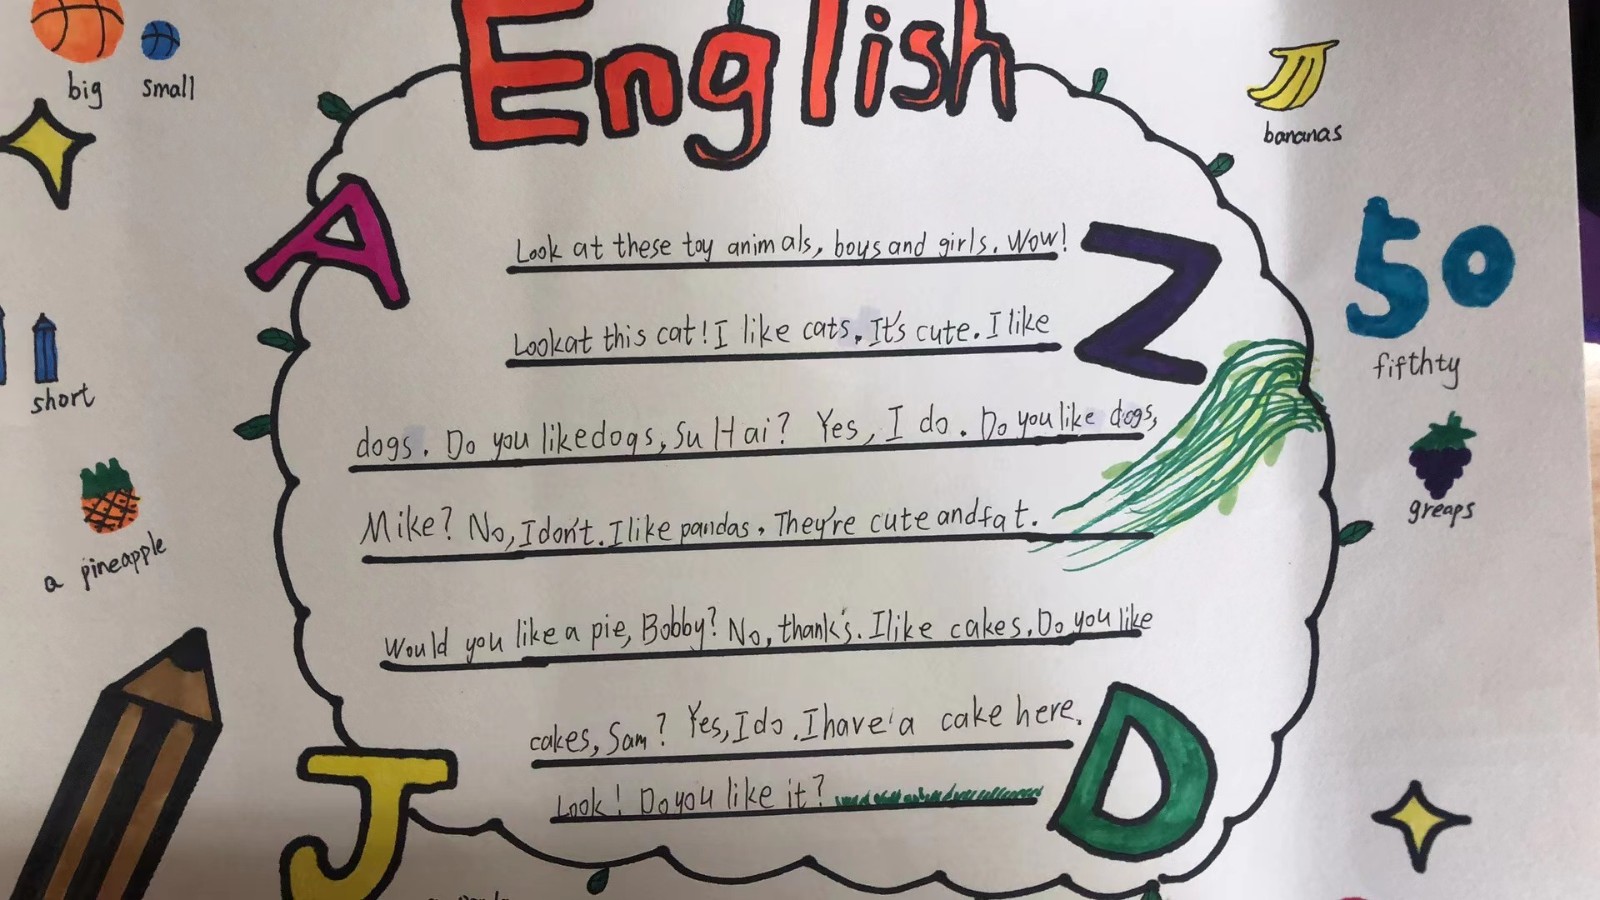 English
big small
bananas
A
Z
Look at these toy animals, boys and girls. Wow!
50
Look at this cat! I like cats. It's cute. I like
fifthty
short
dogs. Do you like dogs, Su Hai? Yes, I do. Do you like dogs,
greaps
Mike? No, I don't. I like pandas. They're cute and fat.
a pineapple
Would you like a pie, Bobby? No, thank's. I like cakes. Do you like
cakes, Sam? Yes, I do. I have a cake here.
Look! Do you like it?
J
D